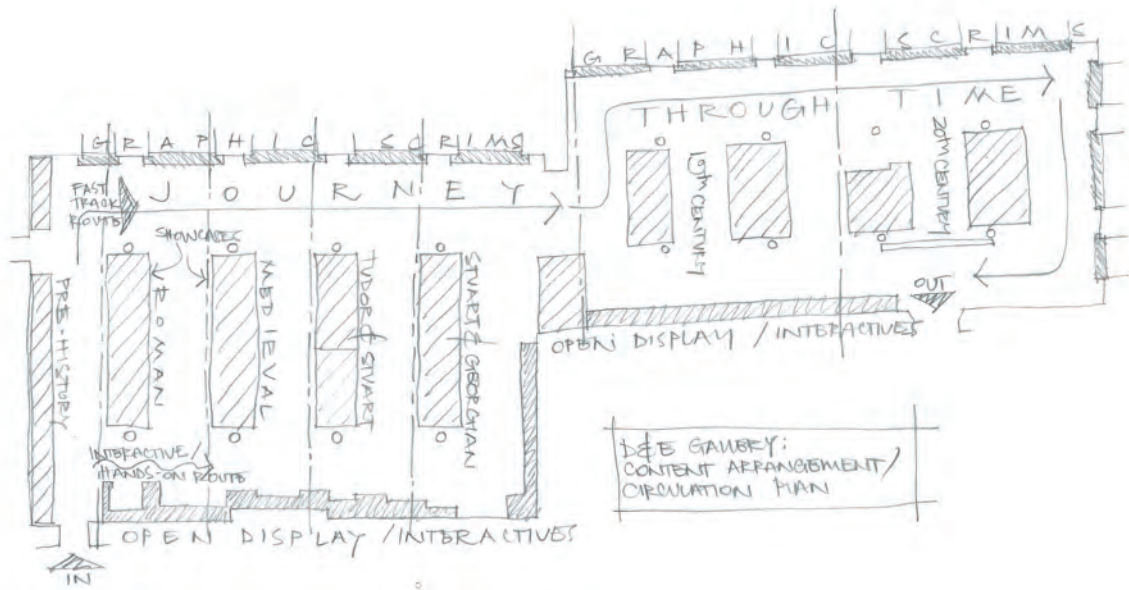 GRAPHIC SCRIMS
THROUGH TIME
GRAPHIC SCRIMS
FAST
TRACK
ROUTE
JOURNEY
SHOWCASES
PRE-HISTORY
ROMAN
MEDIEVAL
TUDOR & STUART
STUART & GEORGIAN
19TH CENTURY
20TH CENTURY
OUT
OPEN DISPLAY / INTERACTIVES
INTERACTIVE/
HANDS-ON ROUTE
OPEN DISPLAY / INTERACTIVES
IN
D&E GALLERY:
CONTENT ARRANGEMENT/
CIRCULATION PLAN